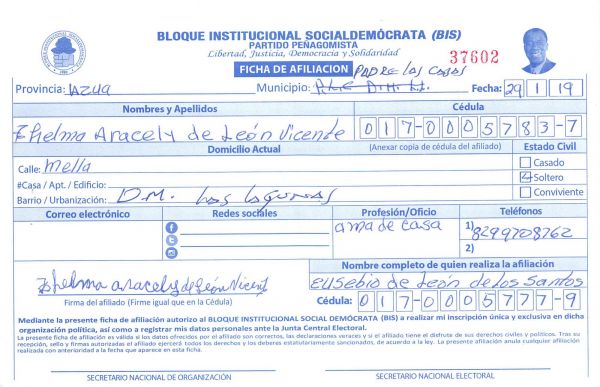 BLOQUE INSTITUCIONAL SOCIALDEMÓCRATA (BIS)
PARTIDO PEÑAGOMISTA
Libertad, Justicia, Democracia y Solidaridad
37602
FICHA DE AFILIACION
Provincia: AZUA Municipio: PADRE Las CASAS Fecha: 29 1 19
Nombres y Apellidos Cédula
Thelma Aracely de León Vicente 017-0005783-7
Domicilio Actual (Anexar copia de cédula del afiliado) Estado Civil
Calle: Mella Casado
#Casa / Apt. / Edificio: Soltero
Barrio / Urbanización: D.M. Las Lagunas Conviviente
Correo electrónico Redes sociales Profesión/Oficio Teléfonos
ama de casa 1) 8299708762
2)
Nombre completo de quien realiza la afiliación
Thelma aracely de León Vicent Eusebio de León de los Santos
Firma del afiliado (Firme igual que en la Cédula) Cédula: 017-0005777-9
Mediante la presente ficha de afiliación autorizo al BLOQUE INSTITUCIONAL SOCIAL DEMÓCRATA (BIS) a realizar mi inscripción única y exclusiva en dicha
organización política, así como a registrar mis datos personales ante la Junta Central Electoral.
La presente ficha de afiliación es válida si los datos ofrecidos por el afiliado son correctos, las declaraciones veraces y si el afiliado tiene el disfrute de sus derechos civiles y políticos. Tras su
recepción, sello y firmas autorizadas el afiliado ejercerá todos los derechos y los deberes estatutariamente sancionados, de acuerdo a la ley. La presente afiliación anula cualquier afiliación
realizada con anterioridad a la fecha que aparece en esta ficha.
SECRETARIO NACIONAL DE ORGANIZACIÓN SECRETARIO NACIONAL ELECTORAL